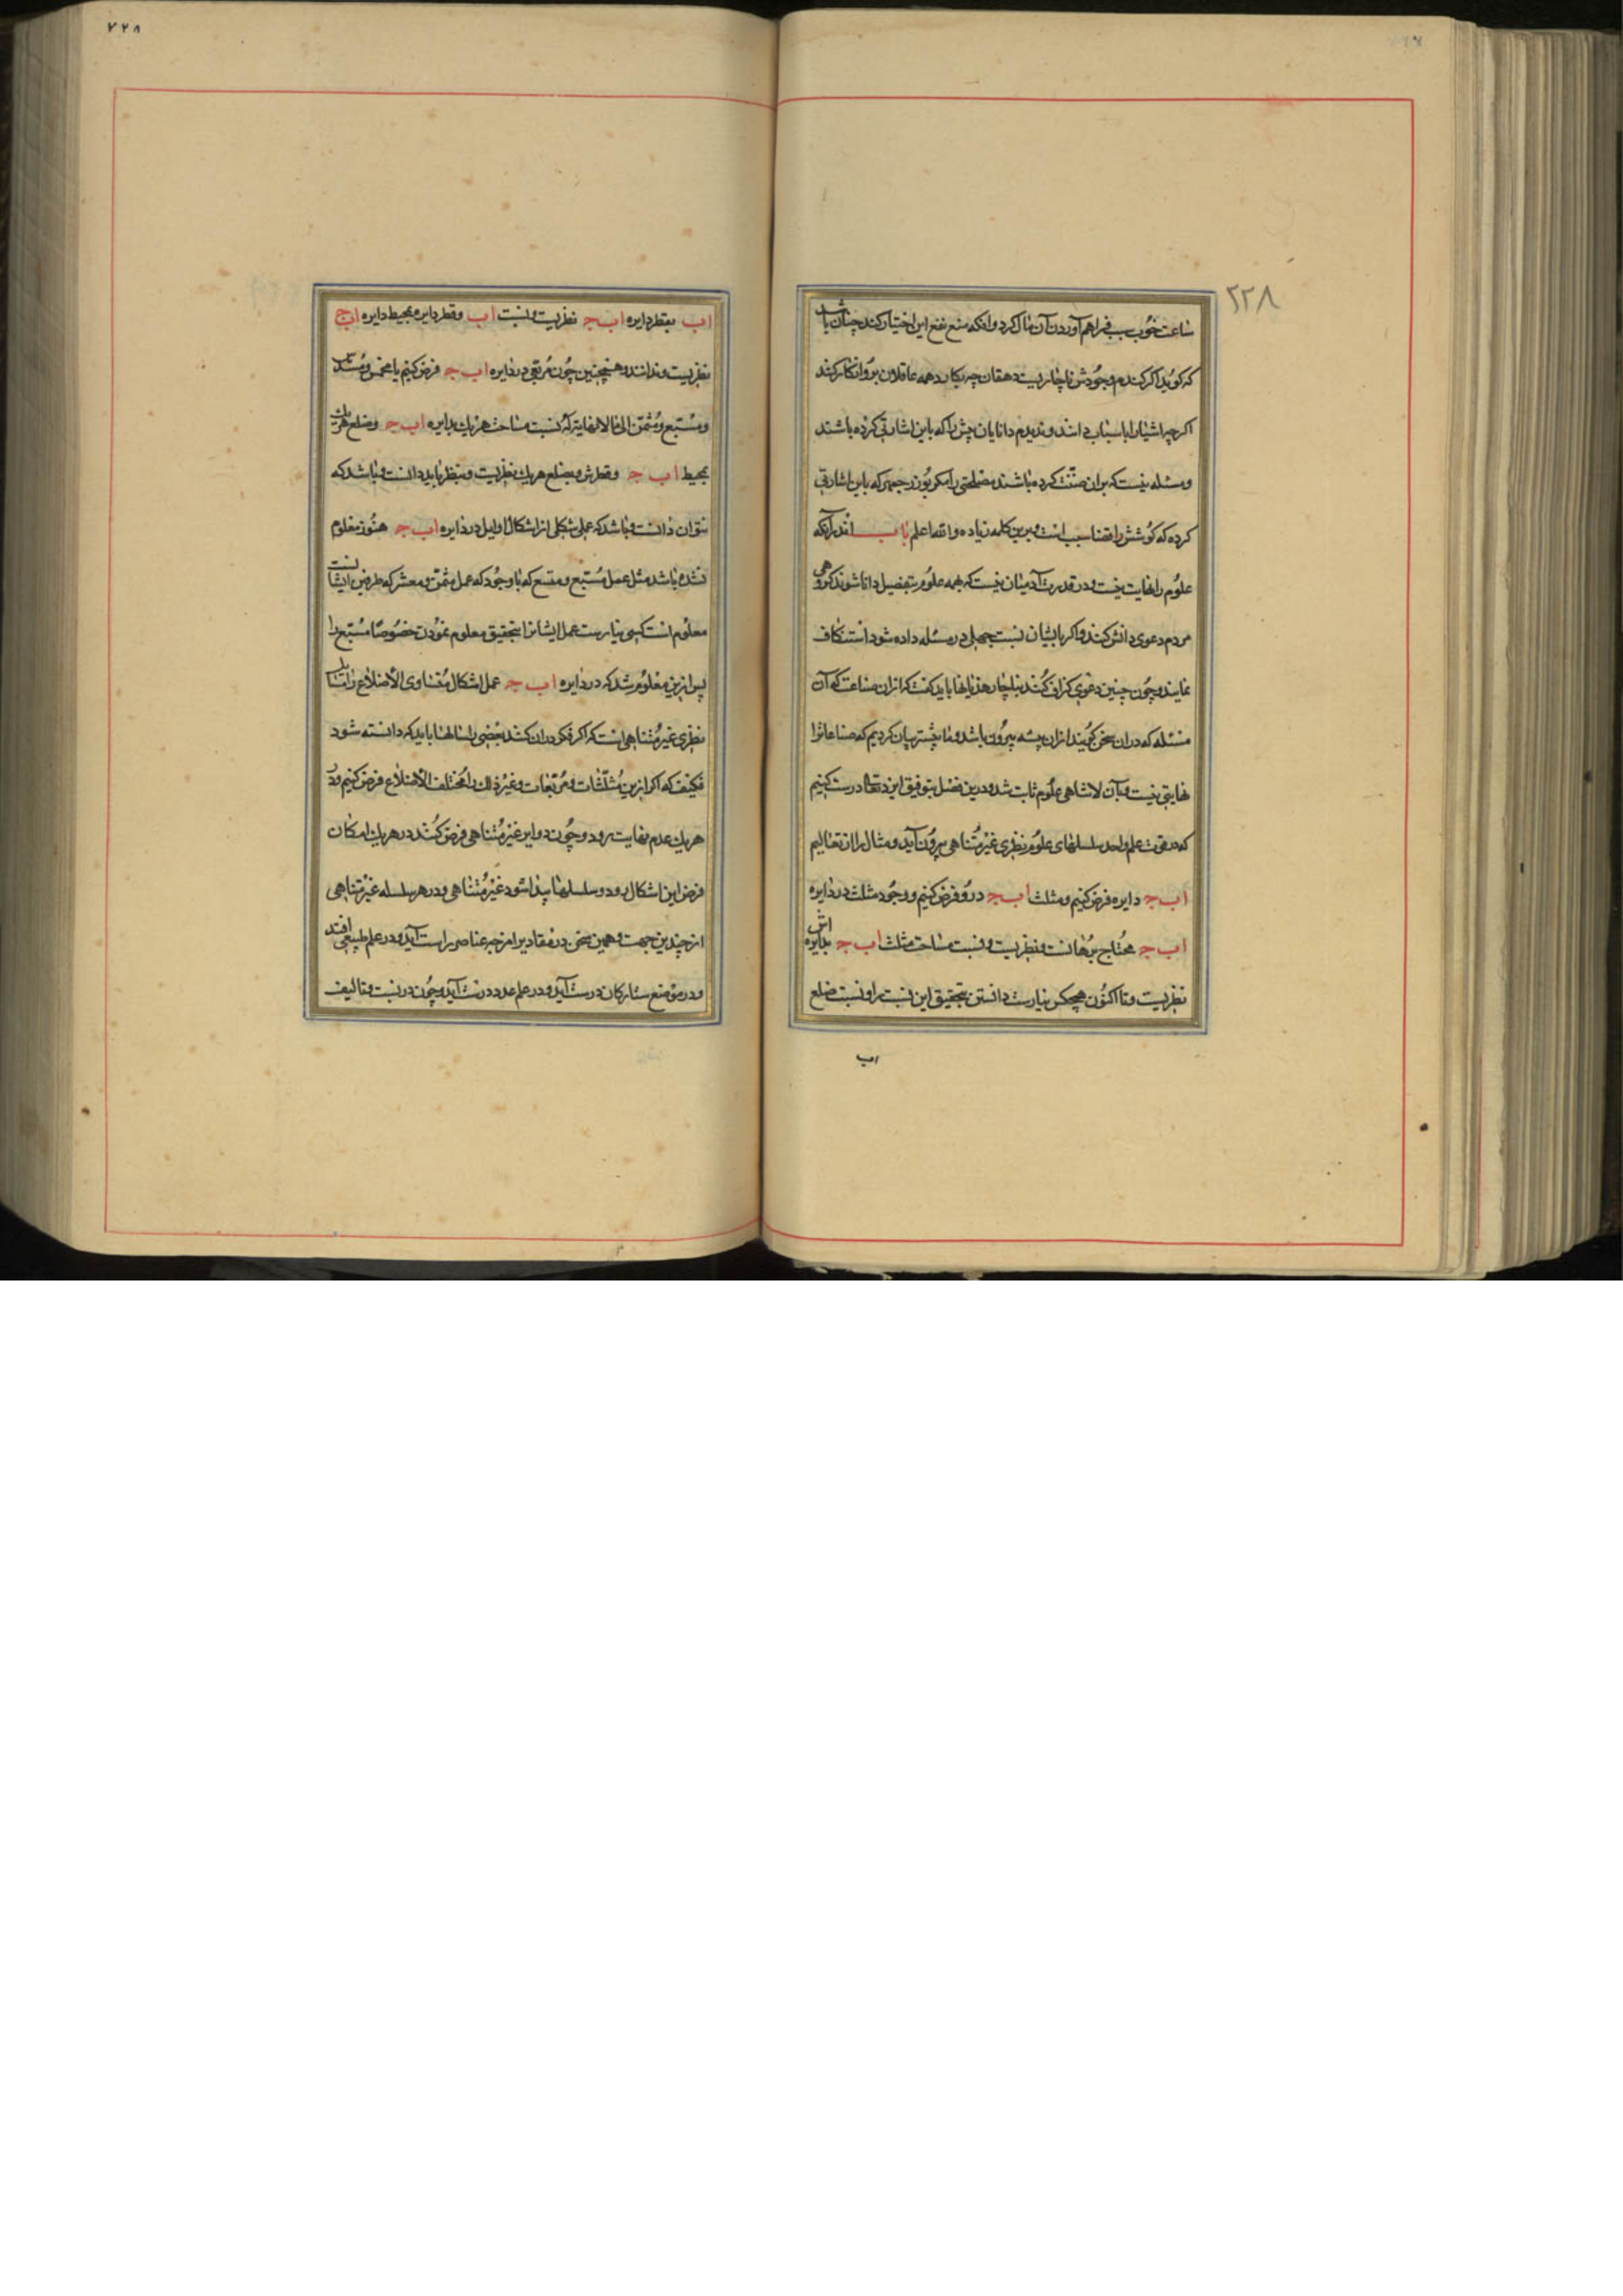 ۲۲۸
ساعت خوب بفراهم آوردن آن مال کرد و آنکه منع نفع این اختیار کند چنان باشد
که گوید اگر گندم وجودش ناچاریست دهقان چه بکار دهمه عاقلان برو انکار کنند
اگرچه اشیا را باسباب دانند و ندیدم دانایان پیش را که باین اشارتی کرده باشند
ومسئله نیست که بران صنّت کرده باشند مصلحتی را مگر بوزرجمهر که باین اشارتی
کرده که کوشش را قضا سبب است و برین کلمه زیاده والله اعلم باب اندر آنکه
علوم را نهایت نیست و در قدرت آدمیان نیست که همه علوم بتفصیل دانا شوند گروهی
مردم دعوی دانش کنند و اگر بایشان نسبت جهلی در مسئله داده شود استنکاف
نمایند و چون چنین دعوی گزاف کنند بناچار هذیانها باید گفت که ازان صناعت که آن
مسئله که دران سخن گویند ازان پیشه بیرون باشد و ما پیشتر بیان کردیم که صناعاترا
نهایتی نیست و بآن لاتناهی علوم ثابت شد و درین فصل بتوفیق ایزد تعالی درست کنیم
که در قوت علم واحد سلسلهای علوم نظری غیر متناهی بیرون آید و مثال را از تعالیم
اب ج دایره فرض کنیم و مثلث اب ج درو فرض کنیم و وجود مثلث در دایره
اب ج محتاج برهانست و نظریست و نسبت مساحت مثلث اب ج بدایره اش
نظریست و تا اکنون هیچکس نیارست دانستن بتحقیق این نسبت را و نسبت ضلع
اب
۲۲۸
اب بقطر دایره اب ج نظریست و نسبت اب وقطر دایره بمحیط دایره اب ج
نظریست و ندانند و همچنین چون مربعی در دایره اب ج فرض کنیم یا مخمس و مسدس
و مسبع و مثمن الی مالانهایة له نسبت مساحت هر یک بدایره اب ج وضلع هر یک
بمحیط اب ج وقطرش و بضلع هر یک نظریست و بنظر باید دانست و باشد که
نتوان دانست و باشد که عمل شکلی از اشکال اوایل در دایره اب ج هنوز معلوم
نشده باشد مثل عمل مسبع و متسع که با وجود که عمل مثمن و معشر که طرفین ایشانست
معلوم است کسی نیارست عمل ایشانرا بتحقیق معلوم نمودن خصوصا مسبع را
پس ازین معلوم شد که در دایره اب ج عمل اشکال متساوی الأضلاع را
نظری غیر متناهی است که اگر فکر دران کنند بعضی را سالها باید که دانسته شود
فکیف که اگر ازین مثلثات و مربعات و غیر ذلک را مختلف الأضلاع فرض کنیم و در
هر یک عدم نهایت برود و چون دوایر غیر متناهی فرض کنند در هر یک امکان
فرض این اشکال برود و سلسلها پیدا شود غیر متناهی و در هر سلسله غیر متناهی
از چندین جهت و همین سخن در مقادیر امزجه عناصر راست آید و در علم طبیعی افتد
و در موضع ستارگان درست آید و در علم عدد درست آید و چون در نسبت و تالیف